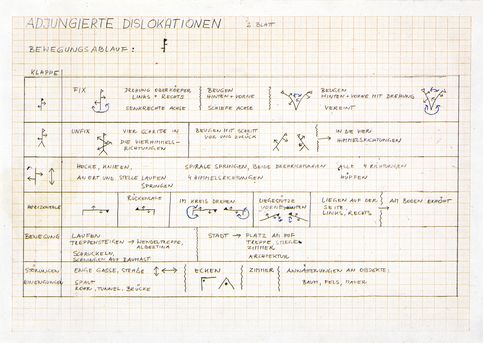 ADJUNGIERTE DISLOKATIONEN 2. BLATT
BEWEGUNGSABLAUF:
KLAPPE
FIX DREHUNG OBERKÖRPER BEUGEN BEUGEN
LINKS + RECHTS HINTEN + VORNE HINTEN + VORNE MIT DREHUNG
SENKRECHTE ACHSE SCHIEFE ACHSE VEREINT
UNFIX VIER SCHRITTE IN BEUGEN MIT SCHRITT IN DIE VIER
DIE VIER HIMMELS- VOR UND ZURÜCK HIMMELSRICHTUNGEN
RICHTUNGEN
HOCKE, KNIEEN, SPIRALE SPRINGEN, BEIDE DREHRICHTUNGEN ALLE 4 RICHTUNGEN
AN ORT UND STELLE LAUFEN 4 HIMMELSRICHTUNGEN HÜPFEN
SPRINGEN
HORIZONTALE RÜCKENLAGE IM KREIS DREHEN LIEGESTÜTZE LIEGEN AUF DER AM BODEN ERHÖHT
VORNE HINTEN SEITE
LINKS, RECHTS
BEWEGUNG LAUFEN STADT → PLATZ AM HOF
TREPPENSTEIGEN → WENDELTREPPE, TREPPE, STIEGE
ALBERTINA ZIMMER
SCHAUKELN ARCHITEKTUR
STÖRUNGEN ENGE GASSE, STRAßE ECKEN ZIMMER ANNÄHERUNGEN AN OBJEKTE,
EINENGUNGEN SPALT BAUM, FELS, MAUER
ROHR, TUNNEL, BRÜCKE